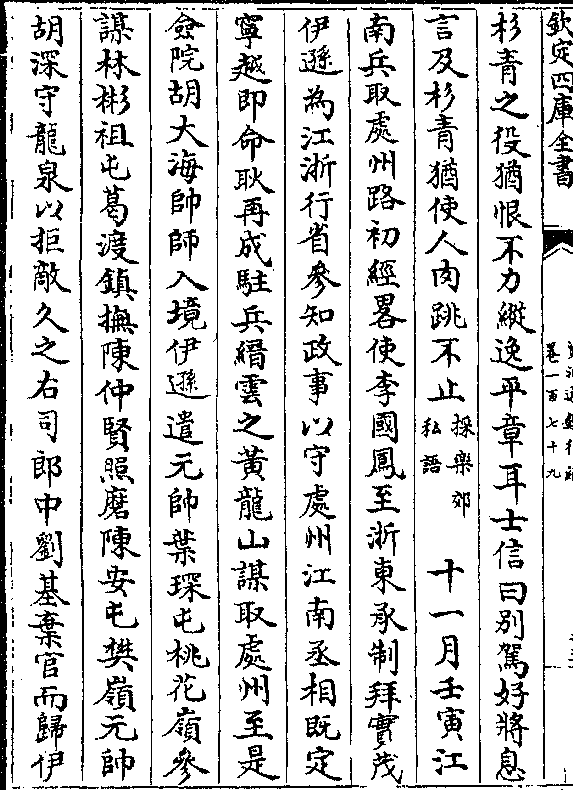 欽定四庫全書
卷一百七十九
杉青之役猶恨不力縱逸平章耳士信曰别駕好將息
言及杉青猶使人肉跳不止採樂郊私語十一月壬寅江
南兵取處州路初經畧使李國鳳至浙東承制拜實茂
伊遜為江浙行省參知政事以守處州江南丞相既定
寧越即命耿再成駐兵縉雲之黄龍山謀取處州至是
僉院胡大海帥師入境伊遜遣元帥葉琛屯桃花嶺參
謀林彬祖屯葛渡鎮撫陳仲賢照磨陳安屯樊嶺元帥
胡深守龍泉以拒敵久之右司郎中劉基棄官而歸伊